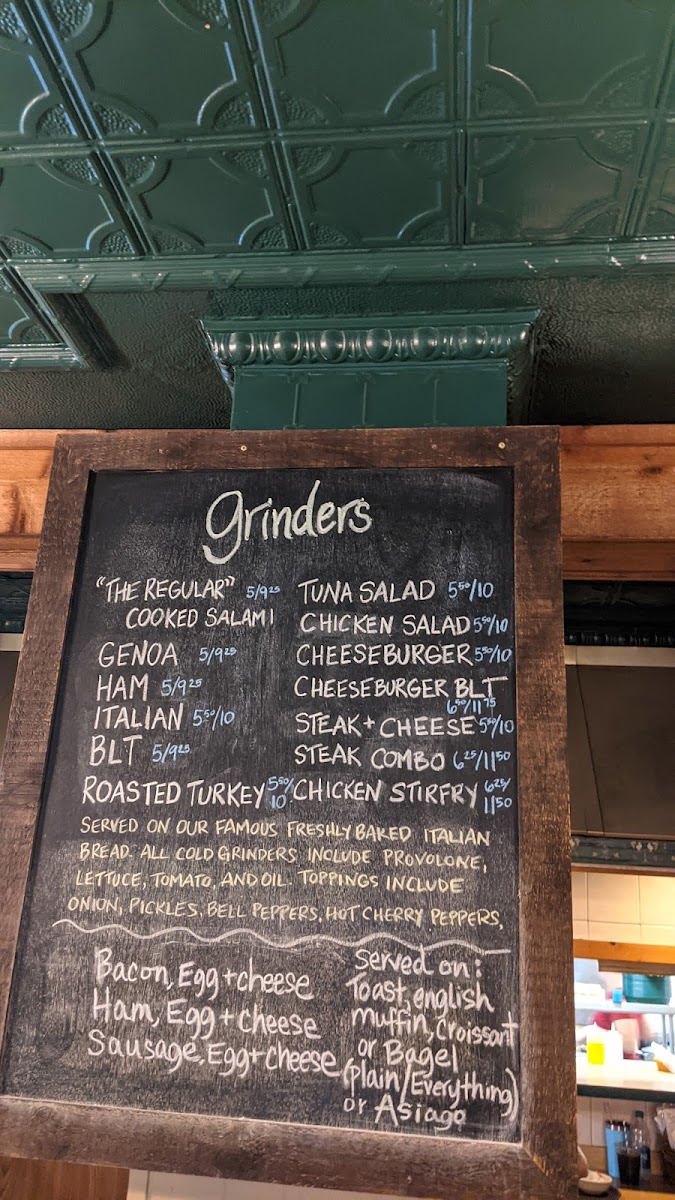 Grinders
"THE REGULAR" 5/9²⁵
COOKED SALAMI
GENOA 5/9²⁵
HAM 5/9²⁵
ITALIAN 5⁵⁰/10
BLT 5/9²⁵
ROASTED TURKEY 5⁵⁰/10
TUNA SALAD 5⁵⁰/10
CHICKEN SALAD 5⁵⁰/10
CHEESEBURGER 5⁵⁰/10
CHEESEBURGER BLT
6⁵⁰/11⁷⁵
STEAK + CHEESE 5⁵⁰/10
STEAK COMBO 6²⁵/11⁵⁰
CHICKEN STIRFRY 6²⁵/
11⁵⁰
SERVED ON OUR FAMOUS FRESHLY BAKED ITALIAN
BREAD. ALL COLD GRINDERS INCLUDE PROVOLONE,
LETTUCE, TOMATO, AND OIL. TOPPINGS INCLUDE
ONION, PICKLES, BELL PEPPERS, HOT CHERRY PEPPERS,
Bacon, Egg + cheese
Ham, Egg + cheese
Sausage, Egg + cheese
Served on:
Toast, english
muffin, Croissant
or Bagel
(plain/Everything)
or Asiago